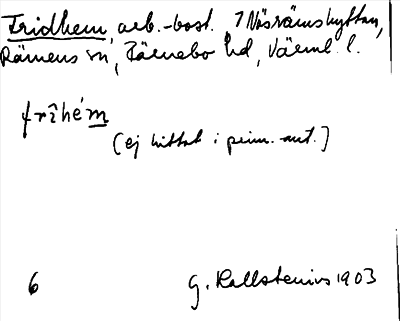 Fridhem, arb.-bost. 7 Näsrämshyttan,
Rämens sn, Färnebo hd, Värml. l.
frìhém
(ej hittat i prim.-ant.)
6 G. Kallstenius 1903